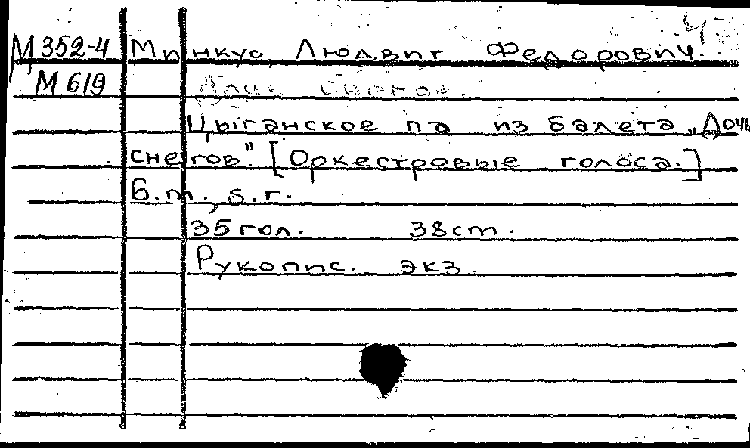 М 352-4 Минкус, Людвиг Федорович.
М 619
Цыганское па из балета „Дочь
снегов". [Оркестровые голоса.]
Б.м., б.г.
35 гол. 38 ст.
Рукопис. экз.